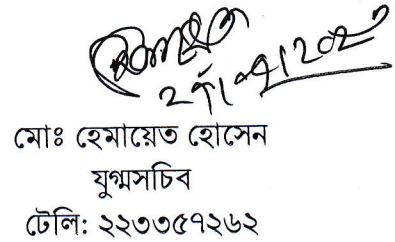 মোঃ হেমায়েত হোসেন
যুগ্মসচিব
টেলি: ২২৩৩৫৭২৬২